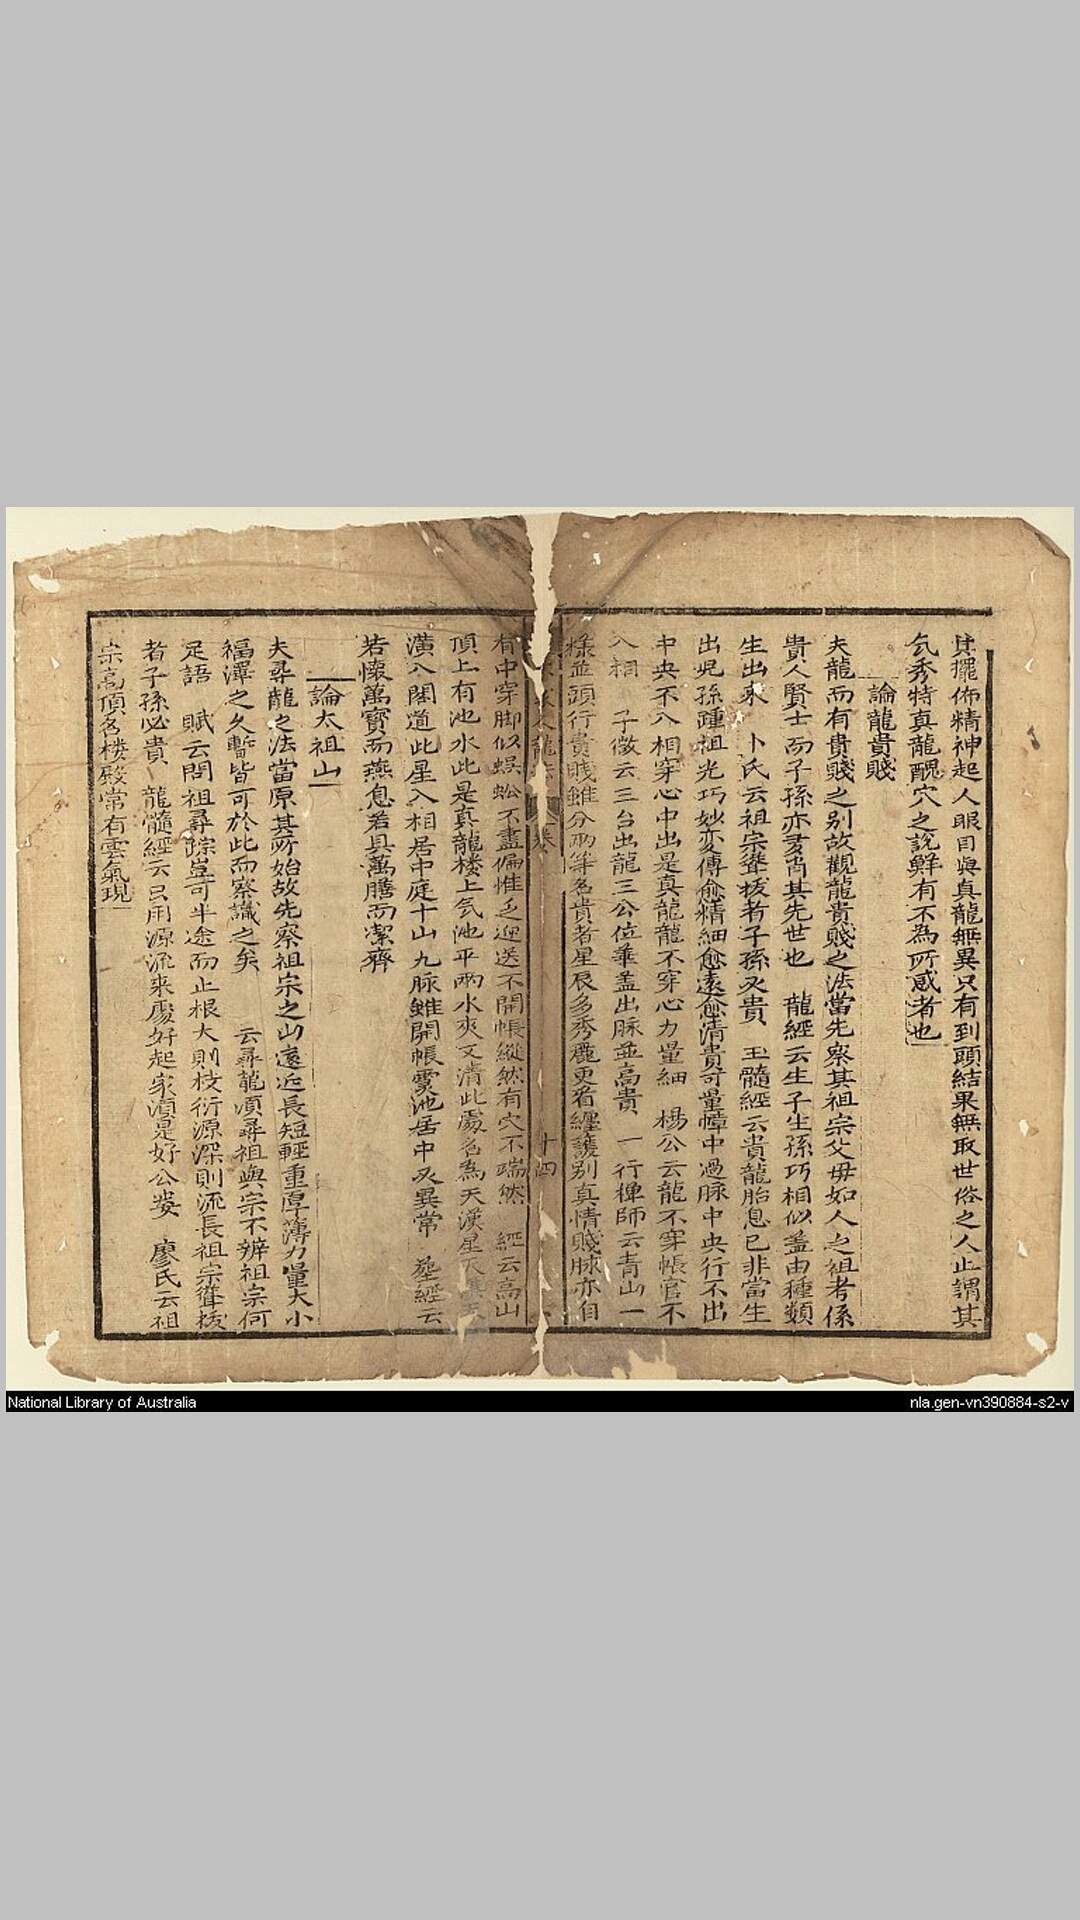 其擺佈精神起人眼目與真龍無異只有到頭結果無取世俗之人止謂其
氣秀特真龍醜穴之說鮮有不為所惑者也
論龍貴賤
夫龍而有貴賤之别故觀龍貴賤之法當先察其祖宗父母如人之祖考係
貴人賢士而子孫亦多肖其先世也 龍經云生子生孫巧相似盖由種類
生出來 卜氏云祖宗聳拔者子孫必貴 玉髓經云貴龍胎息已非當生
出兒孫踵祖光巧妙变傳愈精細愈遠愈清貴可量幛中過脉中央行不出
中央不入相穿心中出是真龍龍不穿心力量細 楊公云龍不穿帳官不
入相 子微云三台出龍三公位華盖出脉並高貴 一行禅師云青山一
樣並頭行貴賤雖分兩等名貴者星辰多秀麗更看纏護别真情賤脉亦自
卷 十四
有中穿脚似蜈蚣不盡偏惟乏迎送不開帳縱然有穴不端然 經云高山
頂上有池水此是真龍楼上气池平兩水夾又清此處名為天漢星天
潢入閣道此星入相居中庭十山九脉雖開帳靈池居中必異常 葬經云
若懷萬寶而燕息若具萬膳而潔齊
論太祖山
夫尋龍之法當原其所始故先察祖宗之山遠近長短輕重厚薄力量大小
福澤之久暫皆可於此而察識之矣 云尋龍須尋祖與宗不辨祖宗何
足語 賦云問祖尋踪豈可半途而止根大則枝衍源深則流長祖宗聳拔
者子孫必貴 龍髓經云只用源流来處好起家須是好公婆 廖氏云祖
宗高頂名楼殿常有雲氣現
National Library of Australia
nla.gen-vn390884-s2-v